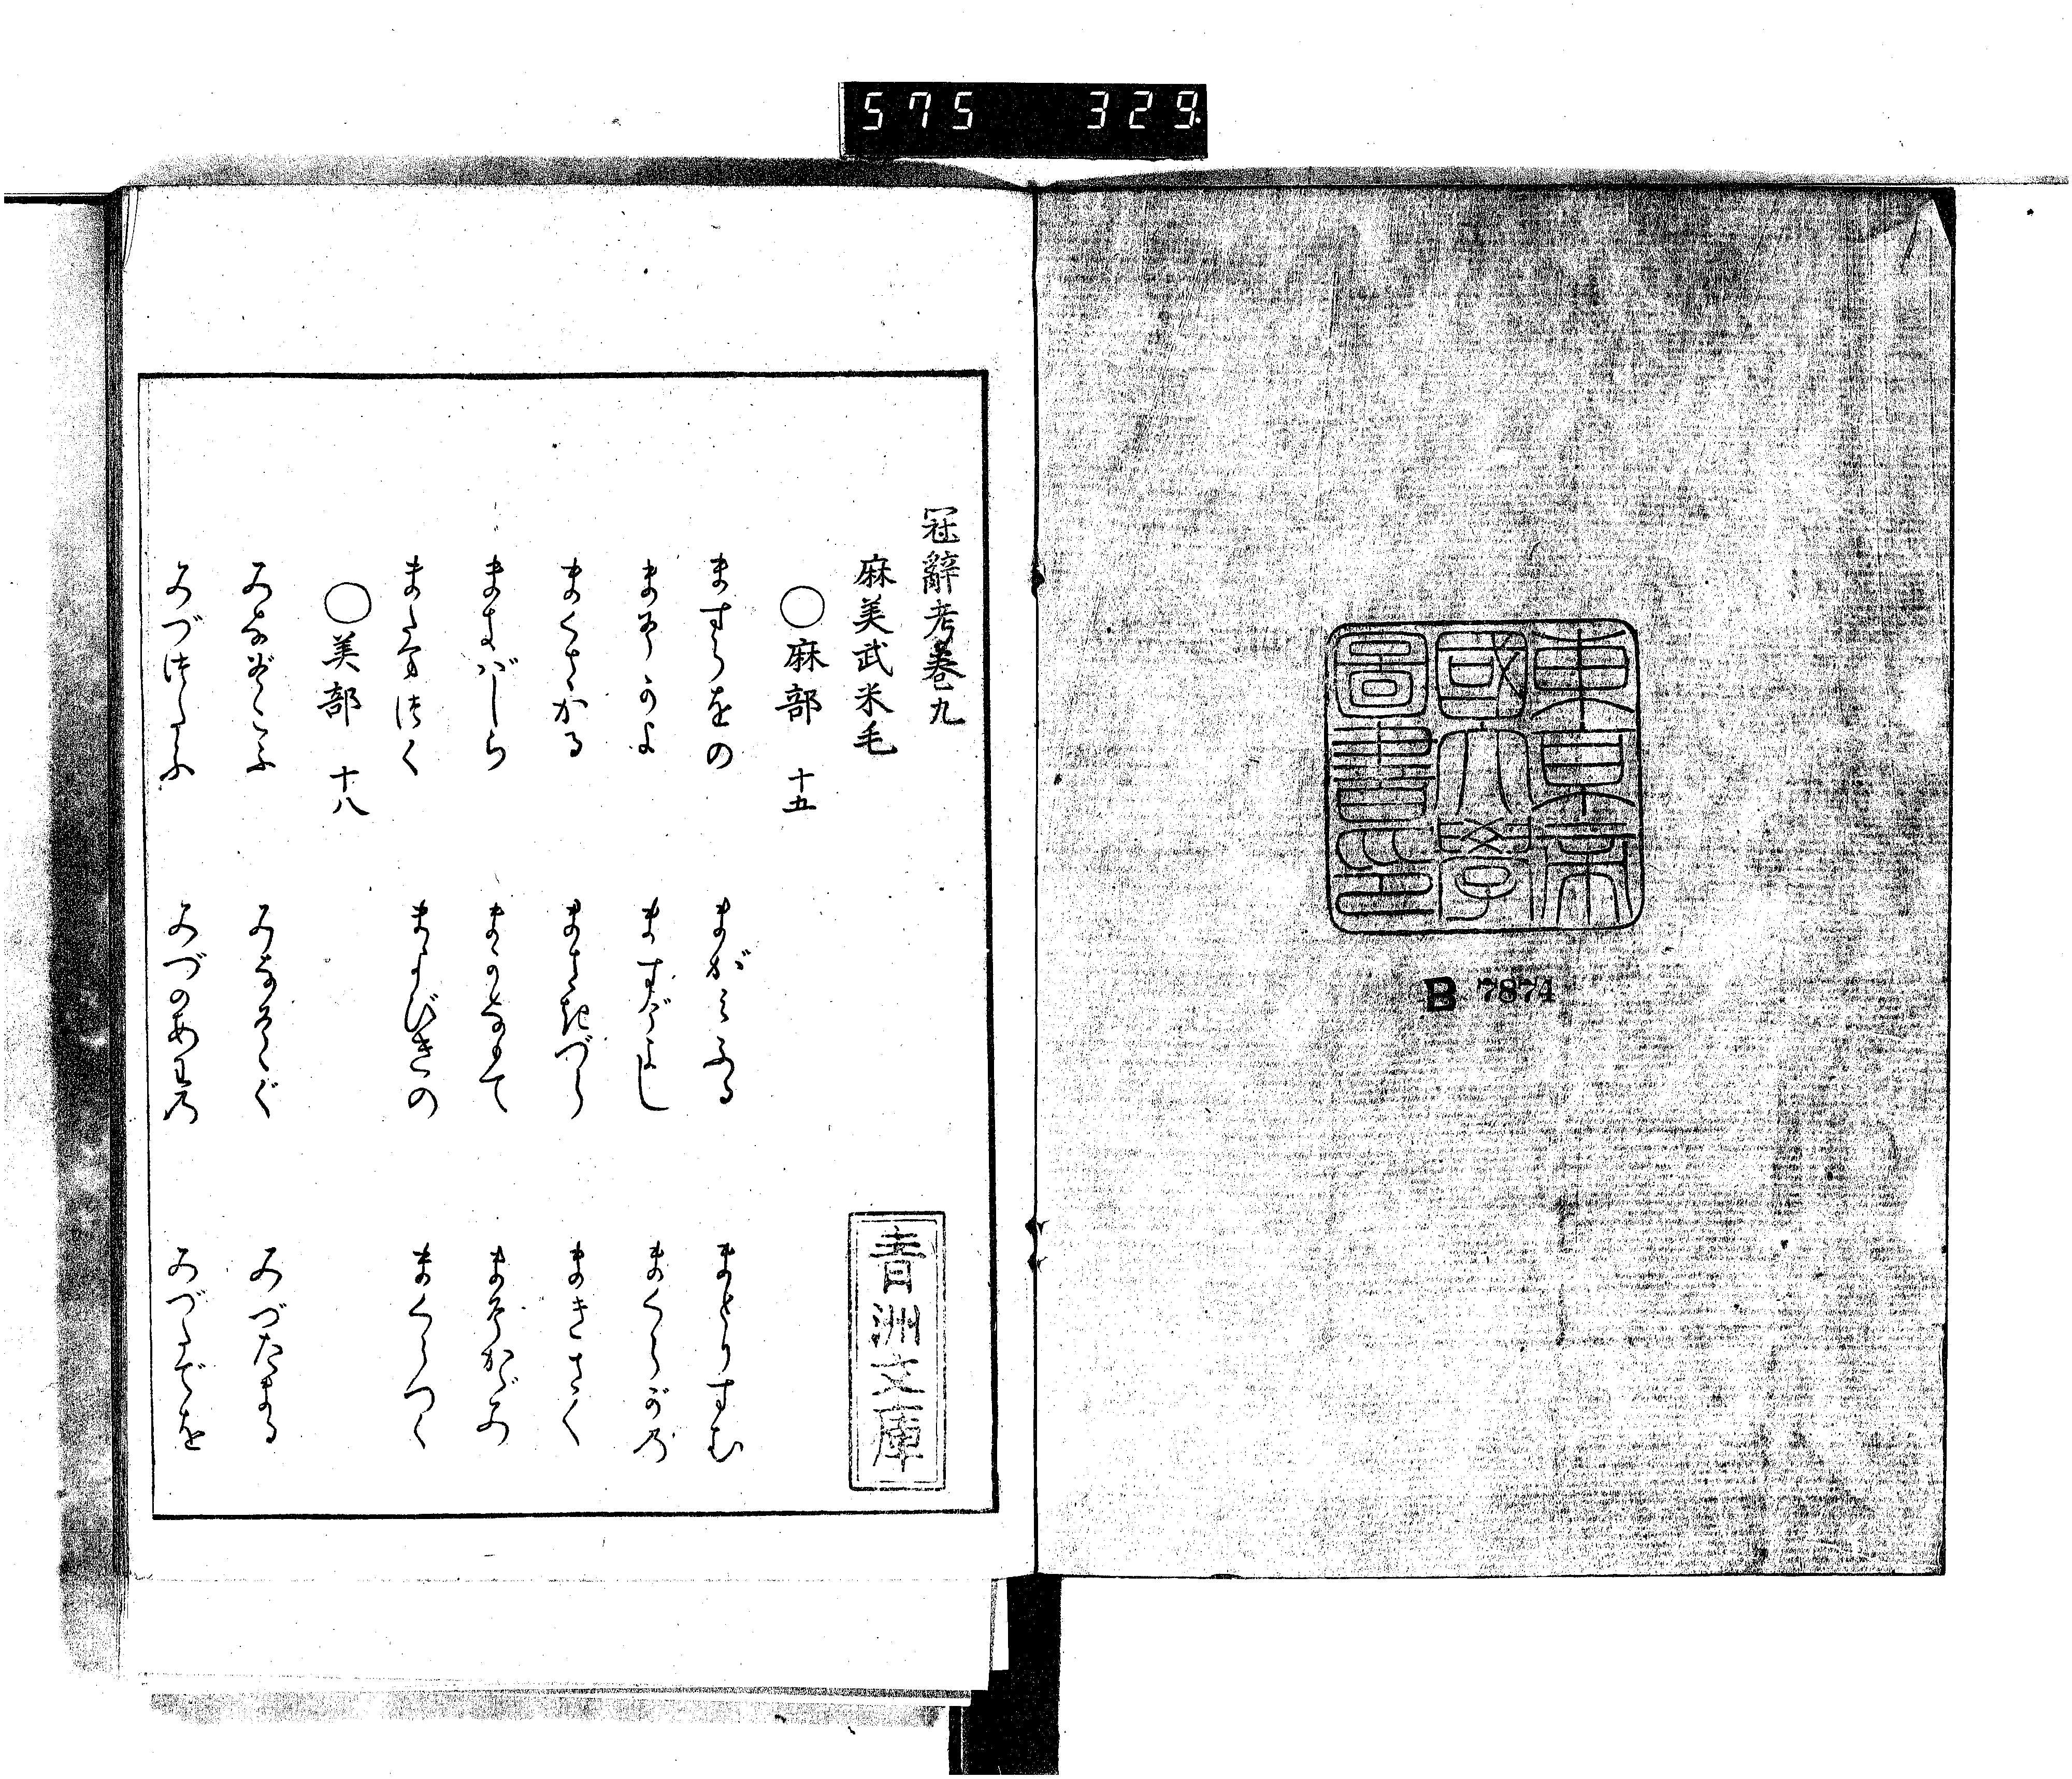 冠辭考卷九
麻美武米毛
○麻部 十五
ますらをの まがみふる まとりすむ
ますげよし まくらがの
まくさかる まさきづら まきさく
まきばしら まかなもて まそかゞみ
またまつく まよびきの まくらつく
○美部 十八
みなぞこふ みなそゝぐ みづたまる
みづつたふ みづのあわの みづたでを
青洲文庫
東京帝
國大學
圖書之印
B 7874
575 329